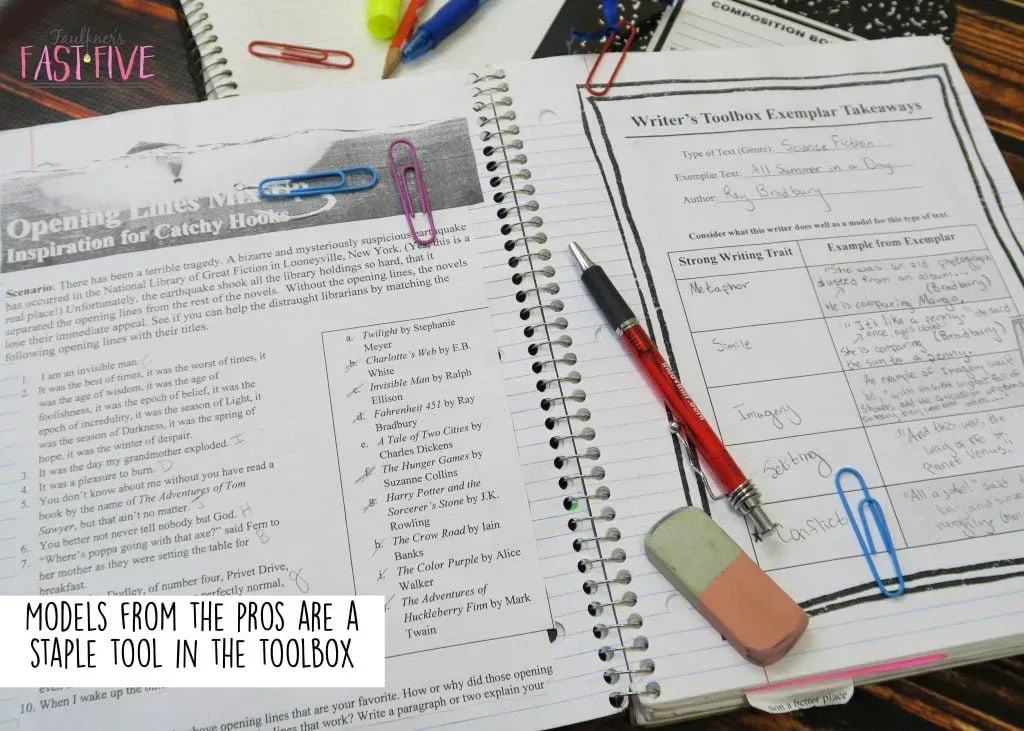 Faulkner's
FAST FIVE
COMPOSITION BO
Opening Lines
Inspiration for Catchy Hooks
Scenario: There has been a terrible tragedy. A bizarre and mysteriously suspicious earthquake
has occurred in the National Library of Great Fiction in Looneyville, New York. (Yes, this is a
real place!) Unfortunately, the earthquake shook all the library holdings so hard, that it
separated the opening lines from the rest of the novels. Without the opening lines, the novels
lose their immediate appeal. See if you can help the distraught librarians by matching the
following opening lines with their titles.
1. I am an invisible man. C
2. It was the best of times, it was the worst of times, it
was the age of wisdom, it was the age of
foolishness, it was the epoch of belief, it was the
epoch of incredulity, it was the season of Light, it
was the season of Darkness, it was the spring of
hope, it was the winter of despair.
3. It was the day my grandmother exploded. I
4. It was a pleasure to burn. D
5. You don't know about me without you have read a
book by the name of The Adventures of Tom
Sawyer, but that ain't no matter. J
6. You better not never tell nobody but God. H
7. "Where's poppa going with that axe?" said Fern to
her mother as they were setting the table for
breakfast. B
Dudley, of number four, Privet Drive,
perfectly normal, g
10. When I wake up the
opening lines that are your favorite. How or why did those opening
lines that work? Write a paragraph or two explain your
a. Twilight by Stephanie
Meyer
b. Charlotte's Web by E.B.
White
c. Invisible Man by Ralph
Ellison
d. Fahrenheit 451 by Ray
Bradbury
e. A Tale of Two Cities by
Charles Dickens
The Hunger Games by
Suzanne Collins
g. Harry Potter and the
Sorcerer's Stone by J.K.
Rowling
h. The Crow Road by Iain
Banks
The Color Purple by Alice
Walker
The Adventures of
Huckleberry Finn by Mark
Twain
Writer's Toolbox Exemplar Takeaways
Type of Text (Genre): Science Fiction
Exemplar Text: All Summer in a Day
Author: Ray Bradbury
Consider what this writer does well as a model for this type of text.
Strong Writing Trait Example from Exemplar
Metaphor
"She was an old photograph
dusted from an album...."
(Bradbury)
He is comparing Margo
Simile
"It's like a penny," she said
once, eyes closed (Bradbury)
She is comparing
the sun to a penny.
Imagery
An example of Imagery would
Setting
"And this was the
way of life
planet Venus,
Conflict
"All a joke!" said
MODELS FROM THE PROS ARE A
STAPLE TOOL IN THE TOOLBOX
a better place